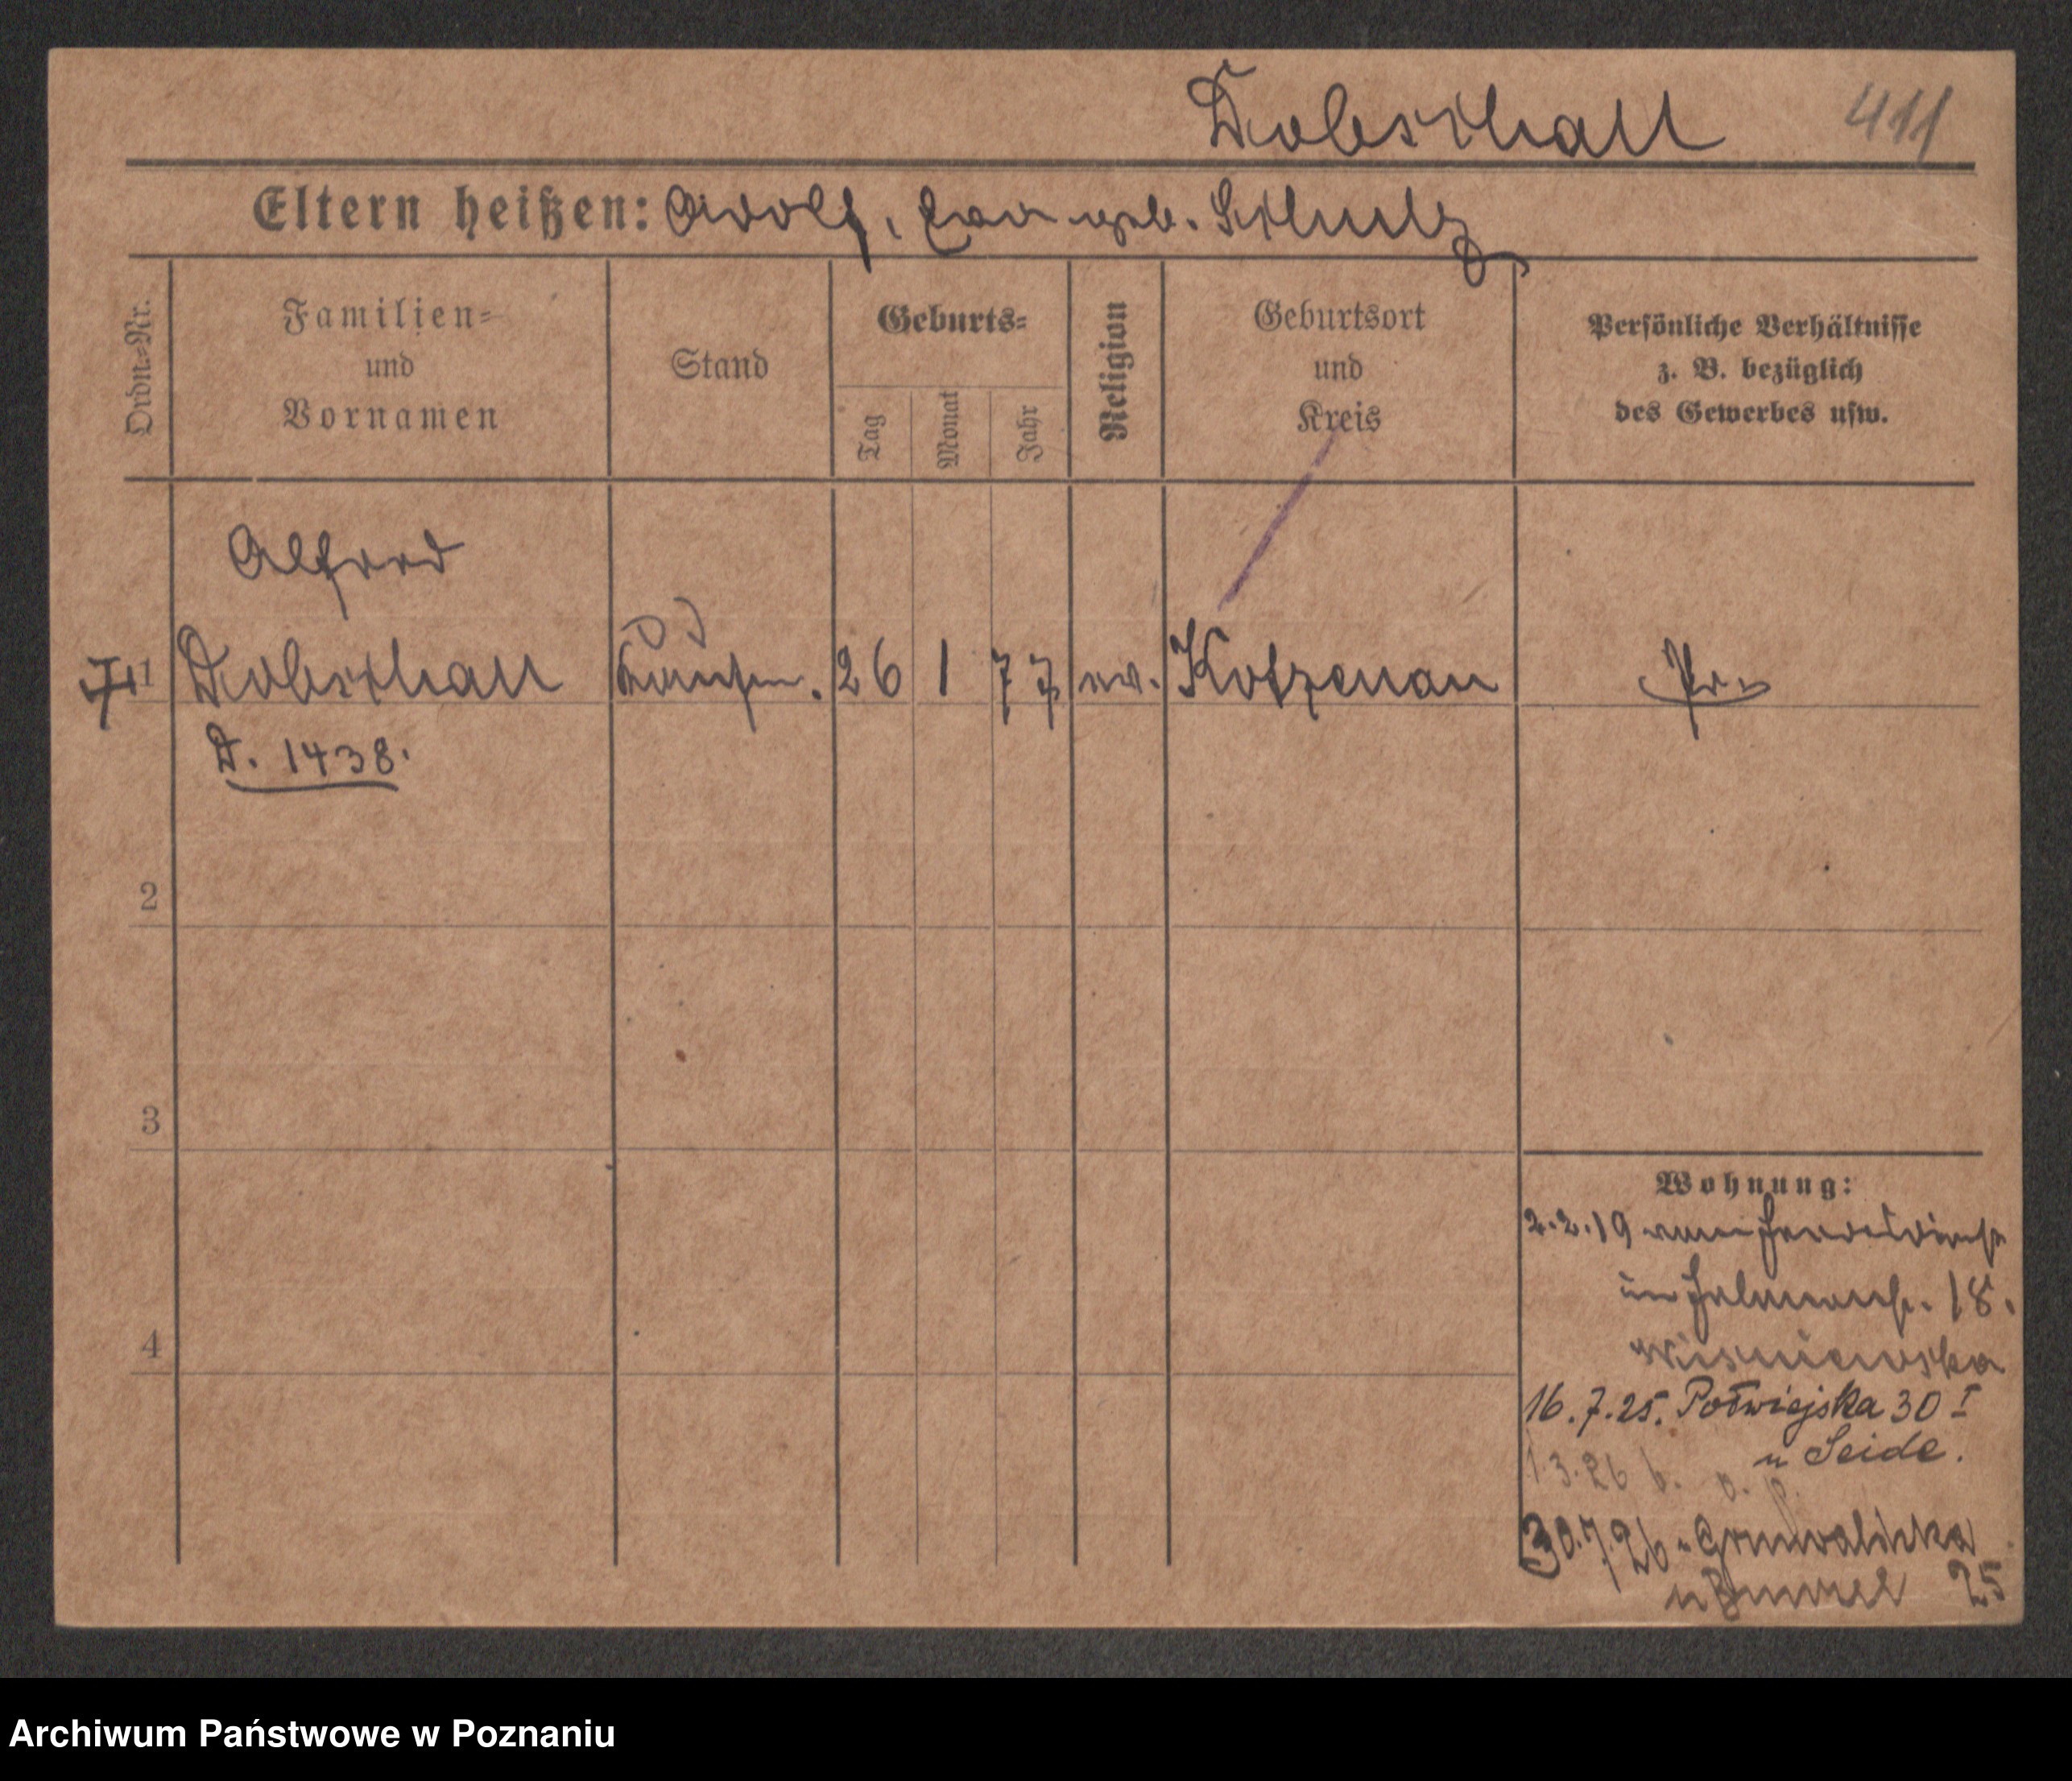 Dobschall 411
Eltern heißen: Adolf, Eva geb. Schulz
Ordn.=Nr.
Familien=
und
Vornamen
Stand
Geburts=
Tag
Monat
Jahr
Religion
Geburtsort
und
Kreis
Persönliche Verhältnisse
z. B. bezüglich
des Gewerbes usw.
Alfred
1 Dobschall Kaufm. 26 1 77 ev. Kotzenau Pr.
D. 1438.
2
3
4
Wohnung:
2.2.19 vom Heeresdienst
18.
Wisniewska
16.7.25. Półwiejska 30 I
u Seide.
1.3.26
30.7.26 Grunwaldzka
u 25
Archiwum Państwowe w Poznaniu